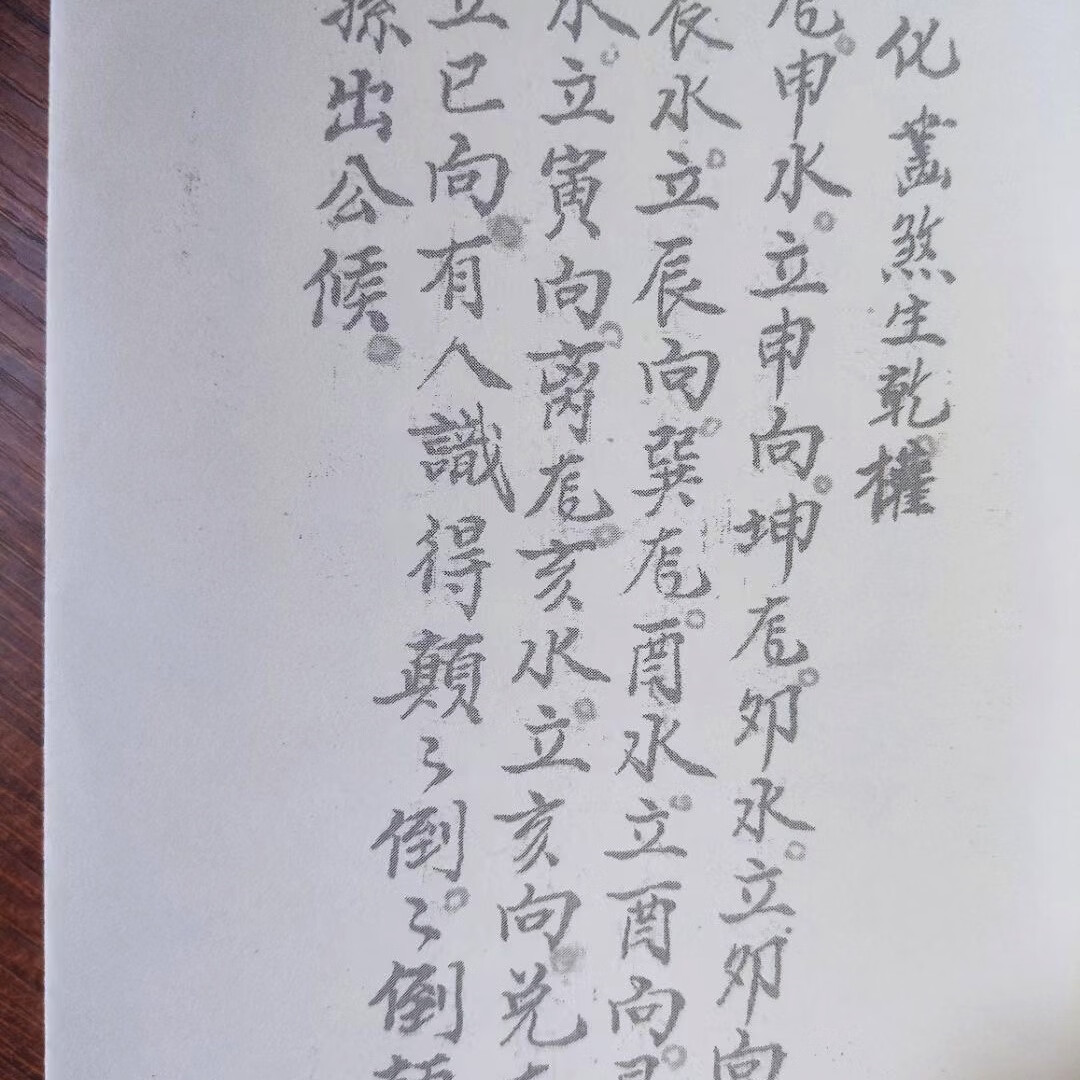 化羞煞生乾權
龙。申水。立申向。坤龙。卯水。立卯向
辰水。立辰向。巽龙。酉水。立酉向。
水。立寅向。离龙。亥水。立亥向。兑
立巳向。有人識得顛〻倒。〻倒顛
孫出公候。